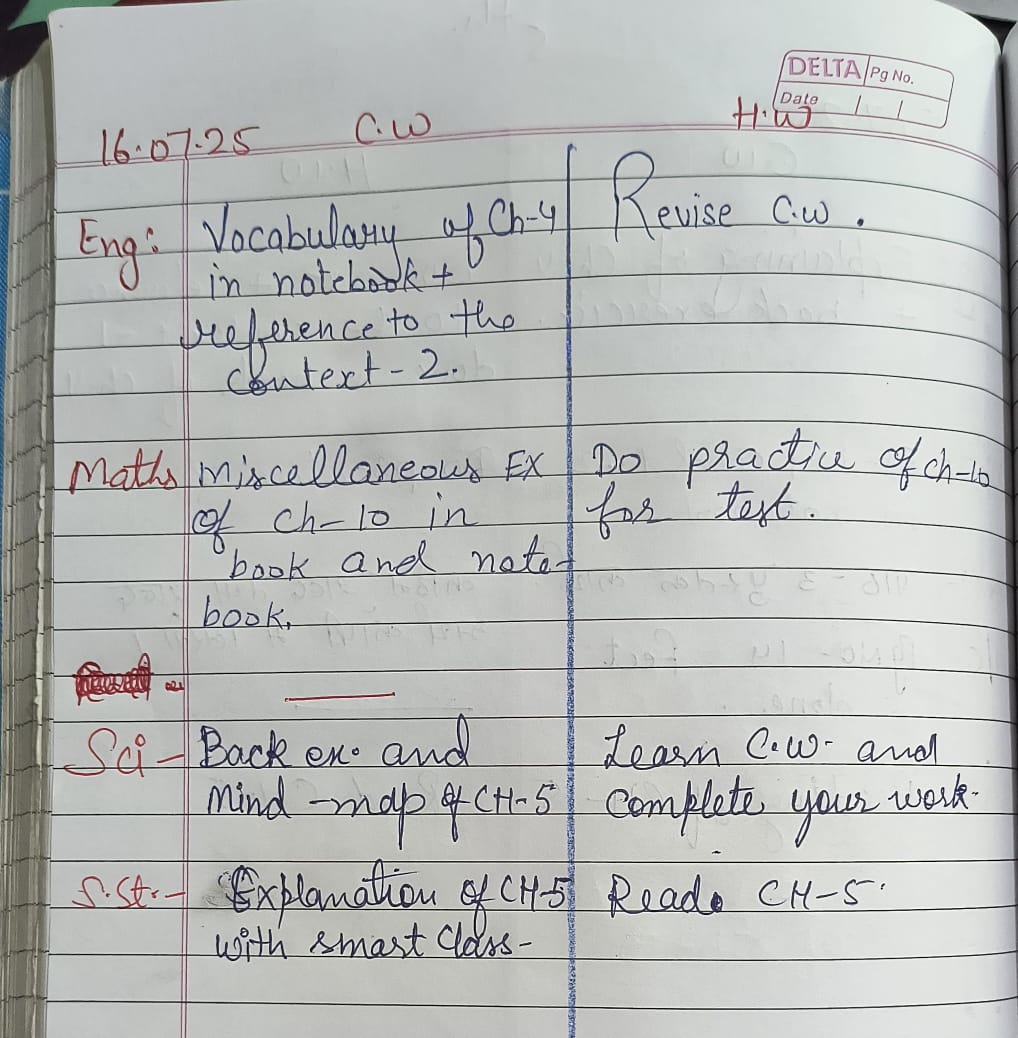 DELTA Pg No.
Date / /
16.07.25 C.W H.W
Eng: Vocabulary of Ch-4 Revise C.W.
in notebook +
reference to the
context - 2.
Maths Miscellaneous Ex Do practice of ch-10
of ch-10 in for test.
book and note-
book.
Sci - Back ex. and Learn C.W. and
Mind-map of CH-5 Complete your work.
S.St. - Explanation of CH-5 Read CH-5.
with smart Class-